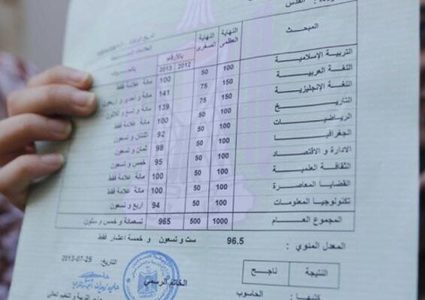 القدس
المبحث النهاية العظمى النهاية الصغرى
بالأرقام
2012 2013
التربية الإسلامية 100 50 100 مائة علامة فقط
اللغة العربية 150 75 141 مائة واحدى و أربعون
اللغة الإنجليزية 150 75 139 مائة و تسع و ثلاثون
التاريخ 100 50 100 مائة علامة فقط
الرياضيات 100 50 92 اثنتان و تسعون
الجغرافيا 100 50 98 ثمان و تسعون
الادارة و الاقتصاد 100 50 95 خمس و تسعون
الثقافة العلمية 100 50 100 مائة علامة فقط
القضايا المعاصرة 100 50
تكنولوجيا المعلومات 100 50 94 اربع و تسعون
المجموع العام 1000 500 965 تسعمائة و خمس و ستون
المعدل المئوي : 96.5 ست و تسعون و خمسة اعشار فقط
النتيجة ناجح
التاريخ: 2013-07-25
الخاتم الرسمي
الحاسوب